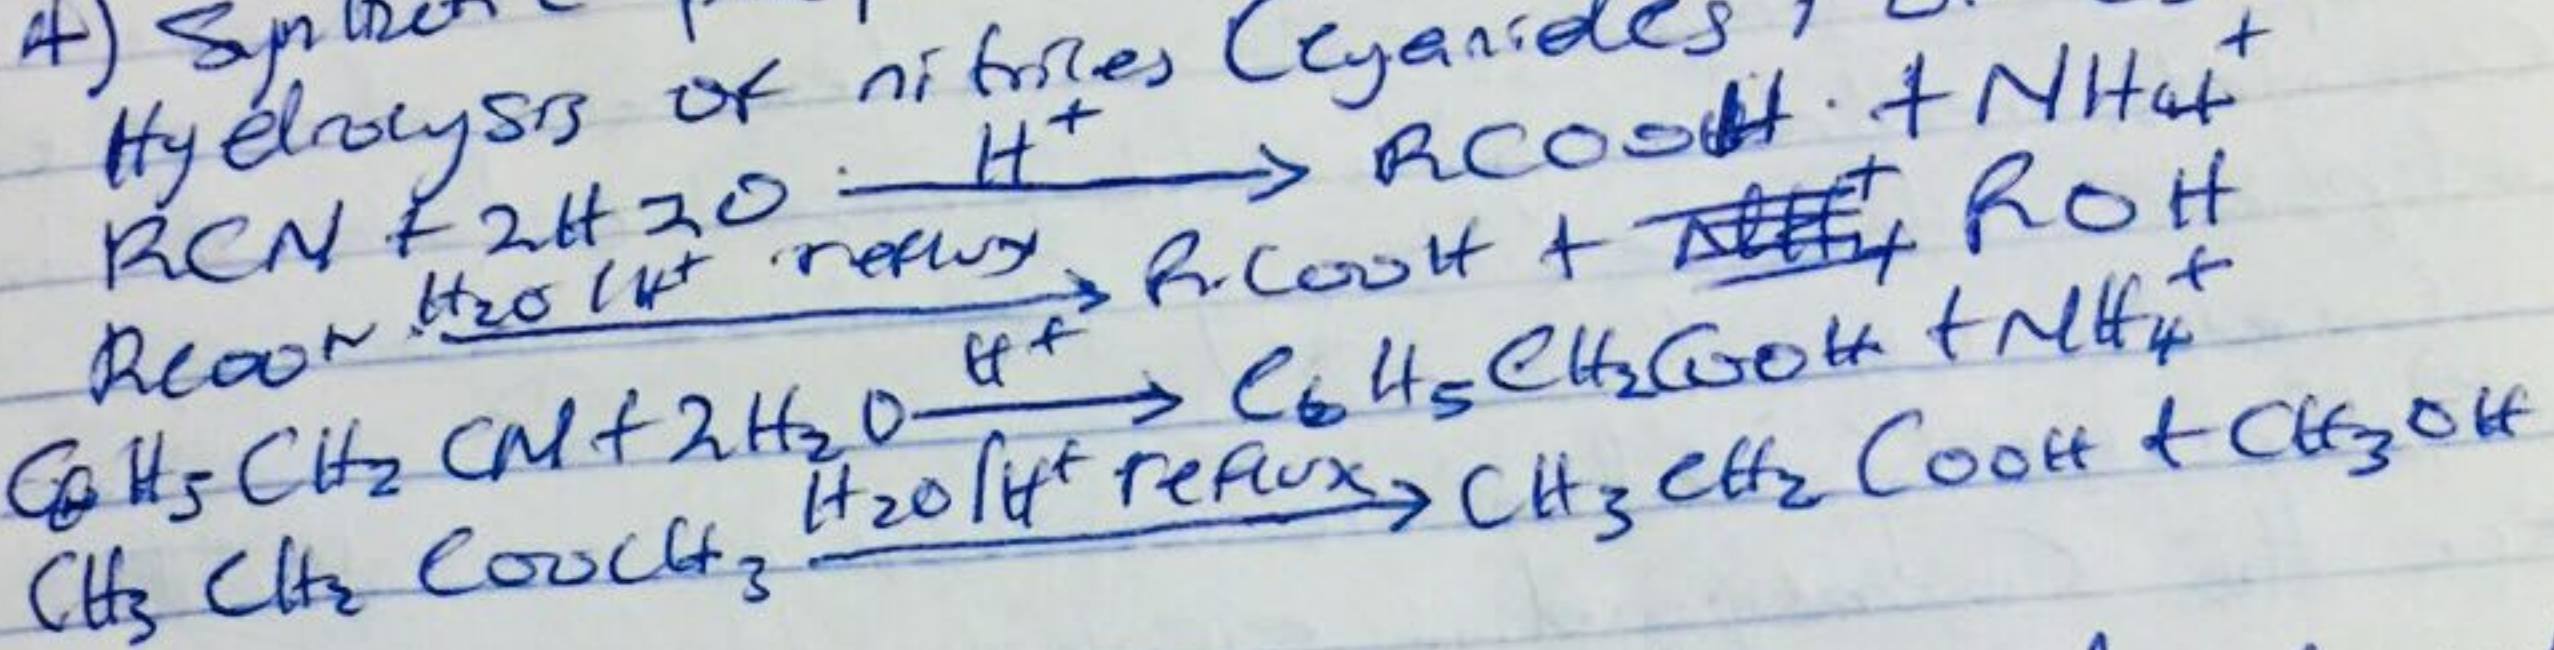 4)
Hydrolysis of nitriles (Cyanides,
RCN + 2H2O H⁺ → RCOOH + NH4⁺
H2O/H⁺ reflux → R.COOH + ROH
C6H5CH2CN + 2H2O H⁺ → C6H5CH2COOH + NH4⁺
CH3CH2COOCH3 H2O/H⁺ reflux → CH3CH2COOH + CH3OH